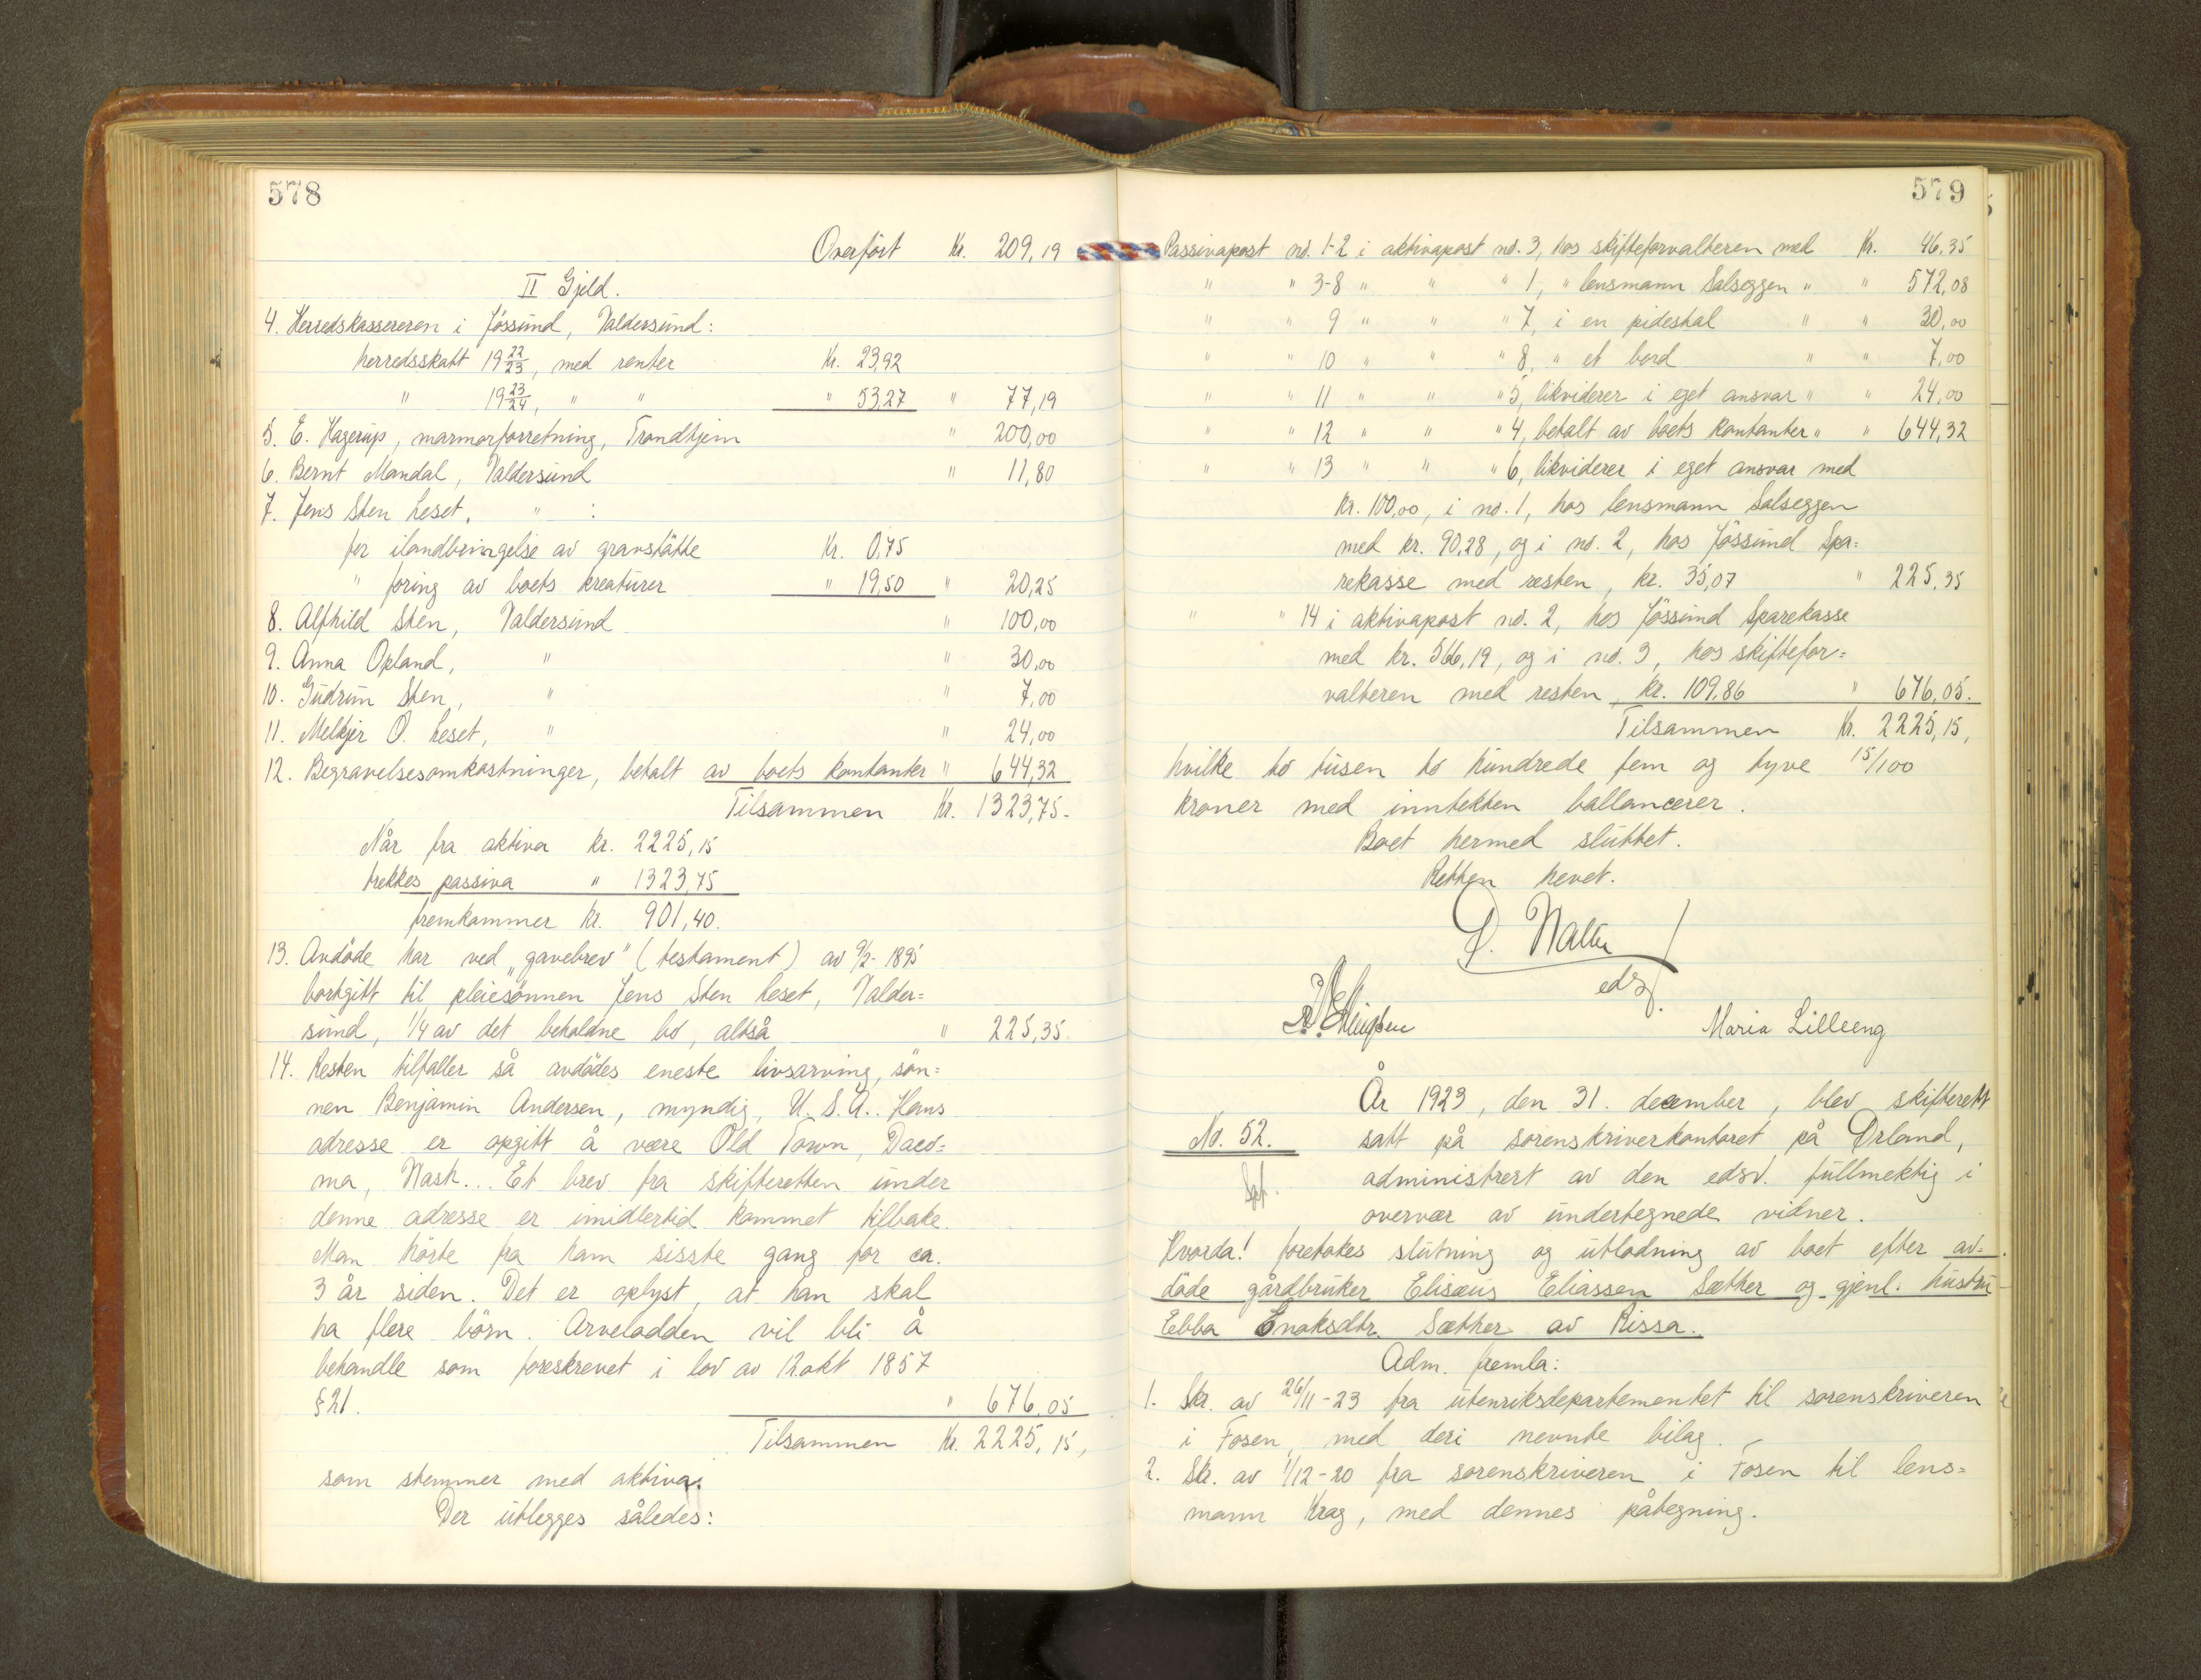 578
Overført Kr. 209,19
II Gjeld.
4. Herredskassereren i Jössund, Valdersund:
herredsskatt 19 22/23, med renter Kr. 23,92
" 19 23/24, " " " 53,27 " 77,19
5. E. Hagerup, marmorforretning, Trondhjem " 200,00
6. Bernt Mandal, Valdersund " 11,80
7. Jens Sten Leset, " :
for ilandbringelse av gravstötte Kr. 0,75
" foring av boets kreaturer " 19,50 " 20,25
8. Alfhild Sten, Valdersund " 100,00
9. Anna Opland, " " 30,00
10. Gudrun Sten, " " 7,00
11. Melkjer O. Leset, " " 24,00
12. Begravelsesomkostninger, betalt av boets kontanter " 644,32
Tilsammen Kr. 1323,75.
Når fra aktiva kr. 2225,15
trekkes passiva " 1323,75
fremkommer kr. 901,40.
13. Avdöde har ved „gavebrev" (testament) av 9/2-1895
bortgitt til pleiesönnen Jens Sten Leset, Valder=
sund, 1/4 av det beholdne bo, altså " 225,35.
14. Resten tilfaller så avdödes eneste livsarving, sön=
nen Benjamin Andersen, myndig, U.S.A.. Hans
adresse er opgitt å være Old Town, Daco=
ma, Wash... Et brev fra skifteretten under
denne adresse er imidlertid kommet tilbake.
Man hörte fra ham sisste gang for ca.
3 år siden. Det er oplyst, at han skal
ha flere börn. Arvelodden vil bli å
behandle som foreskrevet i lov av 12 okt 1857
§21. " 676,05
Tilsammen Kr. 2225,15,
som stemmer med aktiva.
Der utlegges således:
579
Passivapost no. 1-2 i aktivapost no. 3, hos skifteforvalteren med Kr. 46,35
" " 3-8 " " " 1, " lensmann Salseggen " " 572,08
" " 9 " " " 7, i en pidestal " " 30,00
" " 10 " " " 8, " et bord " " 7,00
" " 11 " " " 5, likviderer i eget ansvar " " 24,00
" " 12 " " " 4, betalt av boets kontanter " " 644,32
" " 13 " " " 6, likviderer i eget ansvar med
kr. 100,00, i no. 1, hos lensmann Salseggen
med kr. 90,28, og i no. 2, hos Jössund Spa=
rekasse med resten, kr. 35,07 " 225,35
" " 14 i aktivapost no. 2, hos Jössund Sparekasse
med kr. 566,19, og i no. 3, hos skiftefor=
valteren med resten, kr. 109.86 " 676,05.
Tilsammen Kr. 2225,15,
hvilke to tusen to hundrede fem og tyve 15/100
kroner med inntekten ballancerer.
Boet hermed sluttet.
Retten hevet.
edsv.
Maria Lilleeng
År 1923, den 31. december, blev skifterett
No. 52. satt på sorenskriverkontoret på Ørland,
administrert av den edsv. fullmektig i
overvær av undertegnede vidner.
Hvorda! foretokes slutning og utlodning av boet efter av=
döde gårdbruker Elisæus Eliassen Sæther og gjenl. hustru
Ebba Enoksdtr. Sæther av Rissa.
Adm. fremla:
1. Skr. av 26/11-23 fra utenriksdepartementet til sorenskriveren
i Fosen, med deri nevnte bilag.
2. Skr. av 1/12-20 fra sorenskriveren i Fosen til lens=
mann Krag, med dennes påtegning.